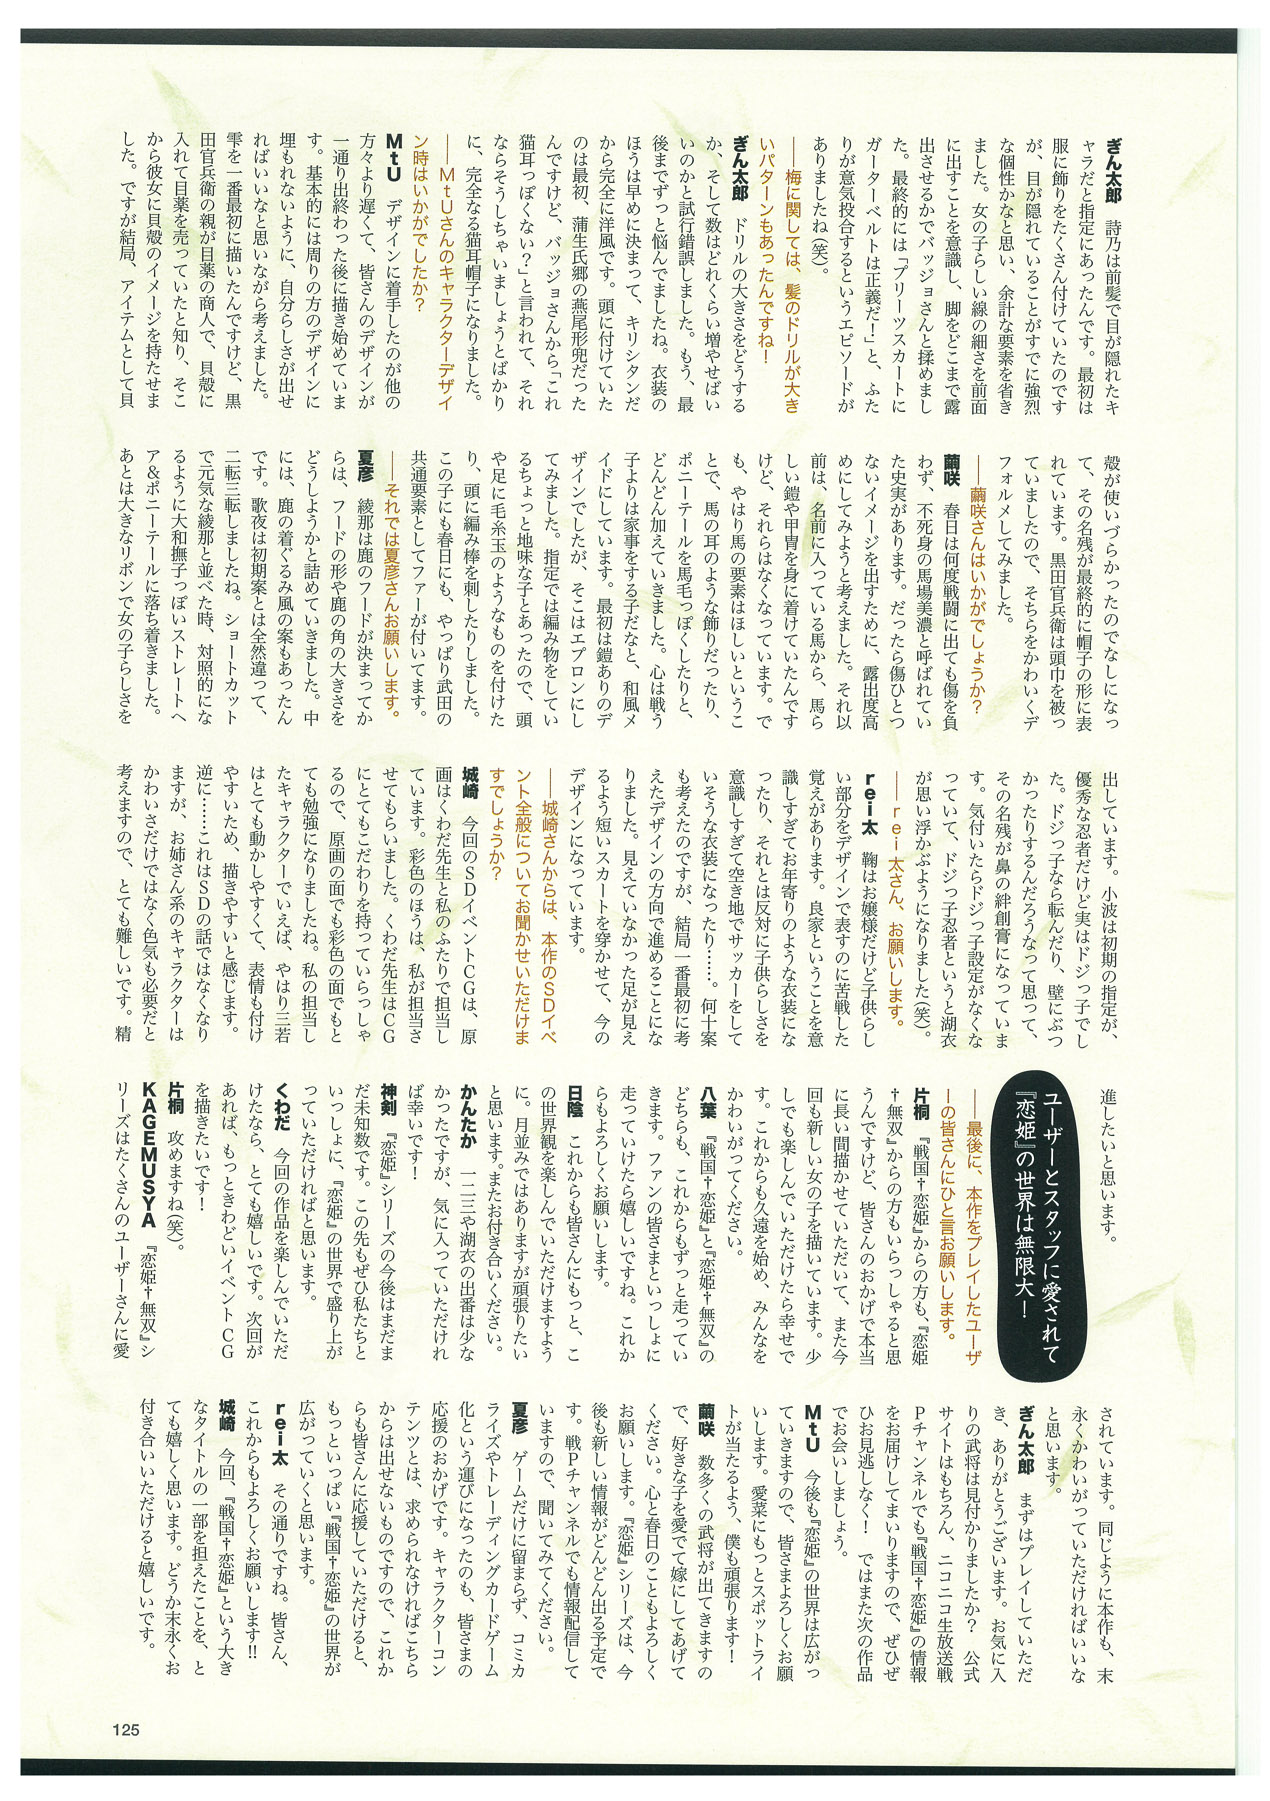 ぎん太郎　詩乃は前髪で目が隠れたキ
ャラだと指定にあったんです。最初は
服に飾りをたくさん付けていたのです
が、目が隠れていることがすでに強烈
な個性かなと思い、余計な要素を省き
ました。女の子らしい線の細さを前面
に出すことを意識し、脚をどこまで露
出させるかでバッジョさんと揉めまし
た。最終的には「プリーツスカートに
ガーターベルトは正義だ！」と、ふた
りが意気投合するというエピソードが
ありましたね（笑）。
――梅に関しては、髪のドリルが大き
いパターンもあったんですね！
ぎん太郎　ドリルの大きさをどうする
か、そして数はどれくらい増やせばい
いのかと試行錯誤しました。もう、最
後までずっと悩んでましたね。衣装の
ほうは早めに決まって、キリシタンだ
から完全に洋風です。頭に付けていた
のは最初、蒲生氏郷の燕尾形兜だった
んですけど、バッジョさんから「これ
猫耳っぽくない？」と言われて、それ
ならそうしちゃいましょうとばかり
に、完全なる猫耳帽子になりました。
――ＭｔＵさんのキャラクターデザイ
ン時はいかがでしたか？
ＭｔＵ　デザインに着手したのが他の
方々より遅くて、皆さんのデザインが
一通り出終わった後に描き始めていま
す。基本的には周りの方のデザインに
埋もれないように、自分らしさが出せ
ればいいなと思いながら考えました。
雫を一番最初に描いたんですけど、黒
田官兵衛の親が目薬の商人で、貝殻に
入れて目薬を売っていたと知り、そこ
から彼女に貝殻のイメージを持たせま
した。ですが結局、アイテムとして貝
殻が使いづらかったのでなしになっ
て、その名残が最終的に帽子の形に表
れています。黒田官兵衛は頭巾を被っ
ていましたので、そちらをかわいくデ
フォルメしてみました。
――繭咲さんはいかがでしょうか？
繭咲　春日は何度戦闘に出ても傷を負
わず、不死身の馬場美濃と呼ばれてい
た史実があります。だったら傷ひとつ
ないイメージを出すために、露出度高
めにしてみようと考えました。それ以
前は、名前に入っている馬から、馬ら
しい鎧や甲冑を身に着けていたんです
けど、それらはなくなっています。で
も、やはり馬の要素はほしいというこ
とで、馬の耳のような飾りだったり、
ポニーテールを馬毛っぽくしたりと、
どんどん加えていきました。心は戦う
子よりは家事をする子だなと、和風メ
イドにしています。最初は鎧ありのデ
ザインでしたが、そこはエプロンにし
てみました。指定では編み物をしてい
るちょっと地味な子とあったので、頭
や足に毛糸玉のようなものを付けた
り、頭に編み棒を刺したりしました。
この子にも春日にも、やっぱり武田の
共通要素としてファーが付いてます。
――それでは夏彦さんお願いします。
夏彦　綾那は鹿のフードが決まってか
らは、フードの形や鹿の角の大きさを
どうしようかと詰めていきました。中
には、鹿の着ぐるみ風の案もあったん
です。歌夜は初期案とは全然違って、
二転三転しましたね。ショートカット
で元気な綾那と並べた時、対照的にな
るように大和撫子っぽいストレートヘ
ア＆ポニーテールに落ち着きました。
あとは大きなリボンで女の子らしさを
出しています。小波は初期の指定が、
優秀な忍者だけど実はドジっ子でし
た。ドジっ子なら転んだり、壁にぶつ
かったりするんだろうなって思って、
その名残が鼻の絆創膏になっていま
す。気付いたらドジっ子設定がなくな
っていて、ドジっ子忍者というと湖衣
が思い浮かぶようになりました（笑）。
――ｒｅｉ太さん、お願いします。
ｒｅｉ太　鞠はお嬢様だけど子供らし
い部分をデザインで表すのに苦戦した
覚えがあります。良家ということを意
識しすぎてお年寄りのような衣装にな
ったり、それとは反対に子供らしさを
意識しすぎて空き地でサッカーをして
いそうな衣装になったり……。何十案
も考えたのですが、結局一番最初に考
えたデザインの方向で進めることにな
りました。見えていなかった足が見え
るよう短いスカートを穿かせて、今の
デザインになっています。
――城崎さんからは、本作のＳＤイベ
ント全般についてお聞かせいただけま
すでしょうか？
城崎　今回のＳＤイベントＣＧは、原
画はくわだ先生と私のふたりで担当し
ています。彩色のほうは、私が担当さ
せてもらいました。くわだ先生はＣＧ
にとてもこだわりを持っていらっしゃ
るので、原画の面でも彩色の面でもと
ても勉強になりましたね。私の担当し
たキャラクターでいえば、やはり三若
はとても動かしやすくて、表情も付け
やすいため、描きやすいと感じます。
逆に……これはＳＤの話ではなくなり
ますが、お姉さん系のキャラクターは
かわいさだけではなく色気も必要だと
考えますので、とても難しいです。精
進したいと思います。
ユーザーとスタッフに愛されて
『恋姫』の世界は無限大！
――最後に、本作をプレイしたユーザ
ーの皆さんにひと言お願いします。
片桐　『戦国†恋姫』からの方も、『恋姫
†無双』からの方もいらっしゃると思
うんですけど、皆さんのおかげで本当
に長い間描かせていただいて、また今
回も新しい女の子を描いています。少
しでも楽しんでいただけたら幸せで
す。これからも久遠を始め、みんなを
かわいがってください。
八葉　『戦国†恋姫』と『恋姫†無双』の
どちらも、これからもずっと走ってい
きます。ファンの皆さまといっしょに
走っていけたら嬉しいですね。これか
らもよろしくお願いします。
日陰　これからも皆さんにもっと、こ
の世界観を楽しんでいただけますよう
に。月並みではありますが頑張りたい
と思います。またお付き合いください。
かんたか　一二三や湖衣の出番は少な
かったですが、気に入っていただけれ
ば幸いです！
神剣　『恋姫』シリーズの今後はまだま
だ未知数です。この先もぜひ私たちと
いっしょに、『恋姫』の世界で盛り上が
っていただければと思います。
くわだ　今回の作品を楽しんでいただ
けたなら、とても嬉しいです。次回が
あれば、もっときわどいイベントＣＧ
を描きたいです！
片桐　攻めますね（笑）。
ＫＡＧＥＭＵＳＹＡ　『恋姫†無双』シ
リーズはたくさんのユーザーさんに愛
されています。同じように本作も、末
永くかわいがっていただければいいな
と思います。
ぎん太郎　まずはプレイしていただ
き、ありがとうございます。お気に入
りの武将は見付かりましたか？　公式
サイトはもちろん、ニコニコ生放送戦
Ｐチャンネルでも『戦国†恋姫』の情報
をお届けしてまいりますので、ぜひぜ
ひお見逃しなく！　ではまた次の作品
でお会いしましょう。
ＭｔＵ　今後も『恋姫』の世界は広がっ
ていきますので、皆さまよろしくお願
いします。愛菜にもっとスポットライ
トが当たるよう、僕も頑張ります！
繭咲　数多くの武将が出てきますの
で、好きな子を愛でて嫁にしてあげて
ください。心と春日のこともよろしく
お願いします。『恋姫』シリーズは、今
後も新しい情報がどんどん出る予定で
す。戦Ｐチャンネルでも情報配信して
いますので、聞いてみてください。
夏彦　ゲームだけに留まらず、コミカ
ライズやトレーディングカードゲーム
化という運びになったのも、皆さまの
応援のおかげです。キャラクターコン
テンツとは、求められなければこちら
からは出せないものですので、これか
らも皆さんに応援していただけると、
もっといっぱい『戦国†恋姫』の世界が
広がっていくと思います。
ｒｅｉ太　その通りですね。皆さん、
これからもよろしくお願いします!!
城崎　今回、『戦国†恋姫』という大き
なタイトルの一部を担えたことを、と
ても嬉しく思います。どうか末永くお
付き合いいただけると嬉しいです。
125